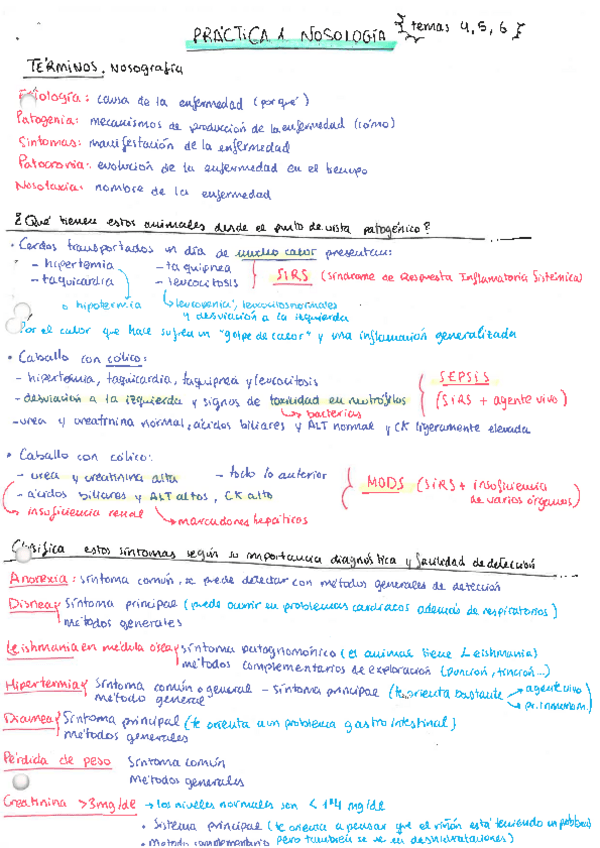 PRÁCTICA 1 NOSOLOGÍA { temas 4, 5, 6 }
TÉRMINOS. Nosografía
Etiología: causa de la enfermedad (por qué)
Patogenia: mecanismos de producción de la enfermedad (cómo)
Síntomas: manifestación de la enfermedad
Patocronia: evolución de la enfermedad en el tiempo
Nosotaxia: nombre de la enfermedad
¿Qué tienen estos animales desde el punto de vista patogénico?
• Cerdos transportados un día de mucho calor presentan:
- hipertermia - taquipnea
- taquicardia - leucocitosis
SIRS (síndrome de Respuesta Inflamatoria Sistémica)
o hipotermia
leucopenia, leucocitos normales
y desviación a la izquierda
Por el calor que hace sufren un "golpe de calor" y una inflamación generalizada
• Caballo con cólico:
- hipertermia, taquicardia, taquipnea y leucocitosis
- desviación a la izquierda y signos de toxicidad en neutrófilos
bacterias
- urea y creatinina normal, ácidos biliares y ALT normal y CK ligeramente elevada
SEPSIS
(SIRS + agente vivo)
• Caballo con cólico:
- urea y creatinina alta - todo lo anterior
- ácidos biliares y ALT altos, CK alto
insuficiencia renal
marcadores hepáticos
MODS (SIRS + insuficiencia
de varios órganos)
Clasifica estos síntomas según su importancia diagnóstica y facilidad de detección
Anorexia: síntoma común, se puede detectar con métodos generales de detección
Disnea síntoma principal (puede ocurrir en problemas cardíacos además de respiratorios)
métodos generales
Leishmania en médula ósea síntoma patognomónico (el animal tiene Leishmania)
métodos complementarios de exploración (punción, tinción...)
Hipertermia síntoma común o general - síntoma principal (te orienta bastante → agente vivo
método general → pr. inmunom.)
Diarrea síntoma principal (te orienta a un problema gastrointestinal)
métodos generales
Pérdida de peso síntoma común
métodos generales
Creatinina >3mg/dl → los niveles normales son < 1'4 mg/dl
• Sistema principal (te orienta a pensar que el riñón está teniendo un problema
• Método complementario pero también se ve en deshidrataciones)